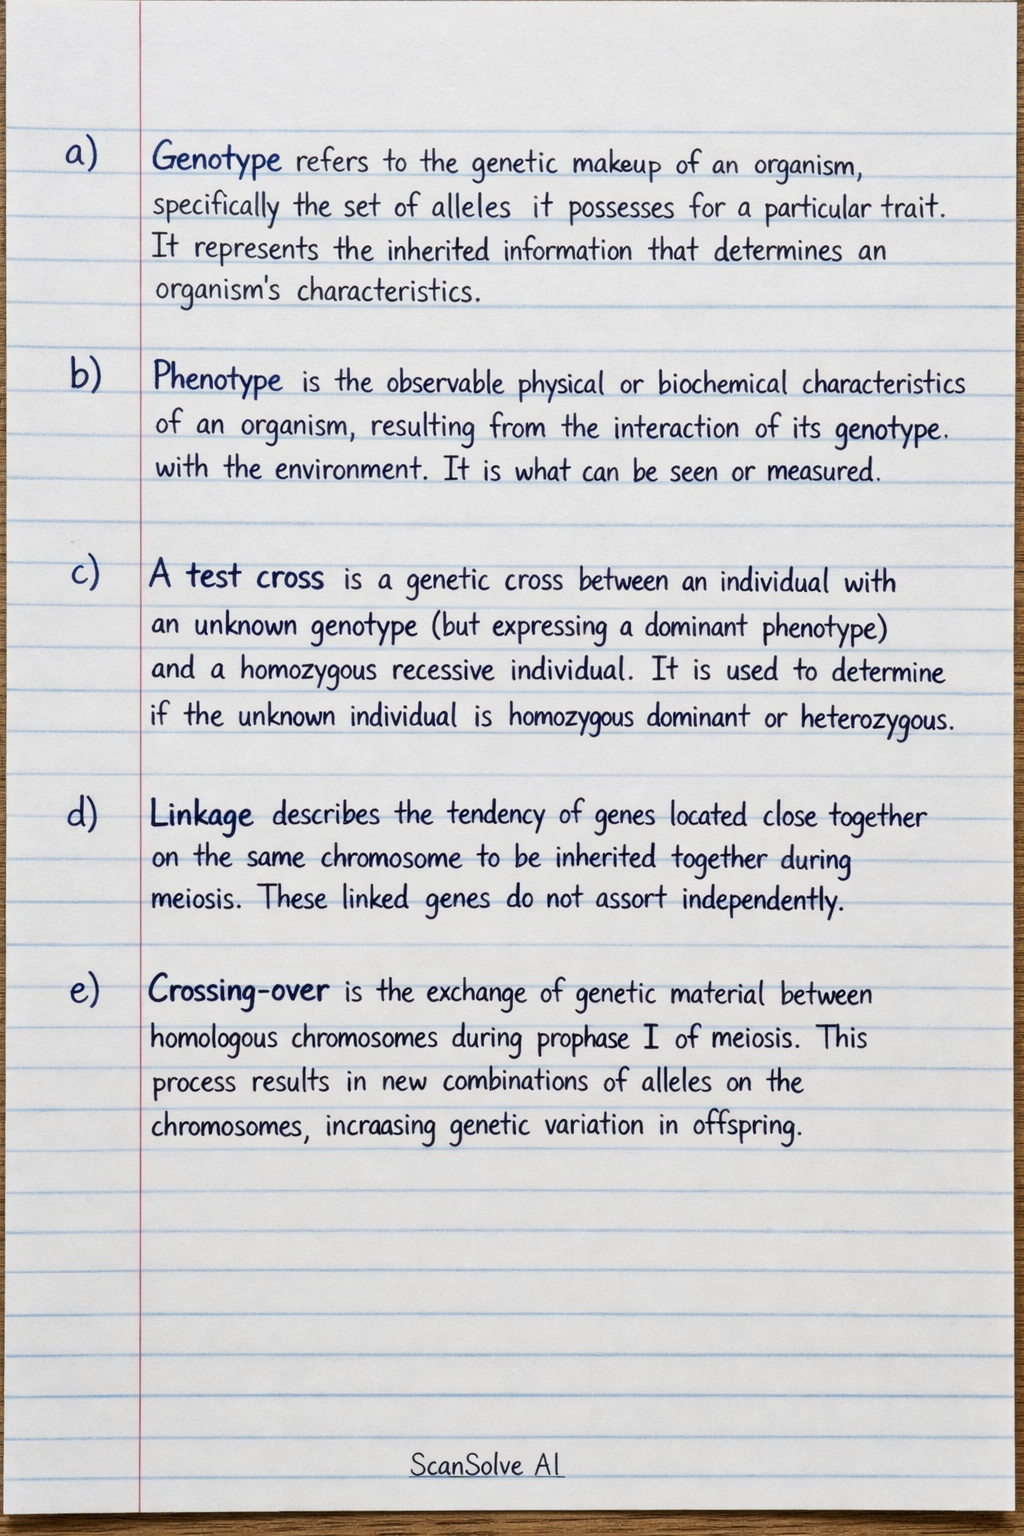 a) Genotype refers to the genetic makeup of an organism,
specifically the set of alleles it possesses for a particular trait.
It represents the inherited information that determines an
organism's characteristics.
b) Phenotype is the observable physical or biochemical characteristics
of an organism, resulting from the interaction of its genotype.
with the environment. It is what can be seen or measured.
c) A test cross is a genetic cross between an individual with
an unknown genotype (but expressing a dominant phenotype)
and a homozygous recessive individual. It is used to determine
if the unknown individual is homozygous dominant or heterozygous.
d) Linkage describes the tendency of genes located close together
on the same chromosome to be inherited together during
meiosis. These linked genes do not assort independently.
e) Crossing-over is the exchange of genetic material between
homologous chromosomes during prophase I of meiosis. This
process results in new combinations of alleles on the
chromosomes, incraasing genetic variation in offspring.
ScanSolve AI